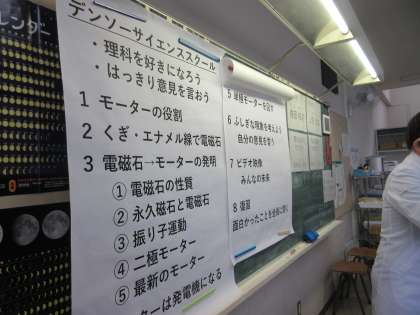 デンソーサイエンススクール
・理科を好きになろう
・はっきり意見を言おう
1 モーターの役割
2 くぎ・エナメル線で電磁石
3 電磁石→モーターの発明
① 電磁石の性質
② 永久磁石と電磁石
③ 振り子運動
④ 二極モーター
⑤ 最新のモーター
ターは発電機になる
5 単極モーターを回す
6 ふしぎな現象を考えよう
自分の意見を言う
7 ビデオ映像
みんなの未来
8 復習
面白かったことを
レンダー